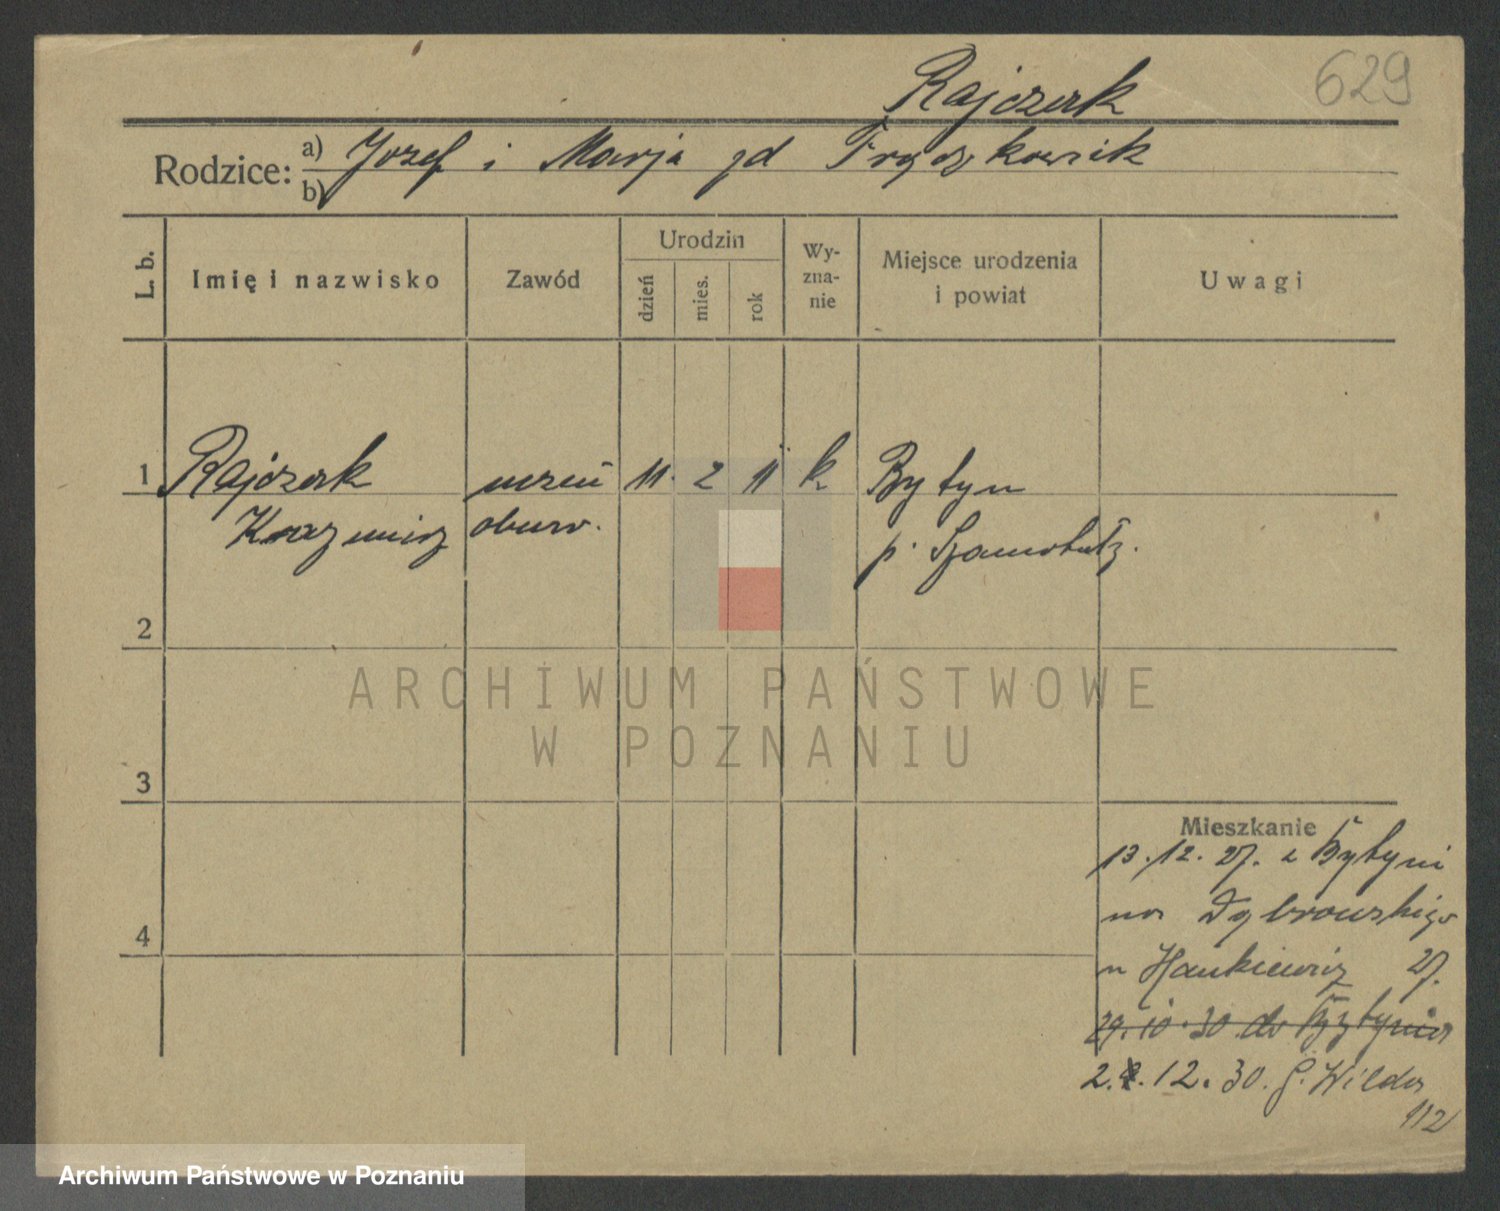 629
Rajczak
Rodzice: a) Jozef i Marja zd Frąckowiak
b)
L. b. Imię i nazwisko Zawód Urodzin dzień mies. rok Wyznanie Miejsce urodzenia i powiat Uwagi
1 Rajczak uczeń 11. 2 11 k Bytyn
Kazmierz obuw. p. Szamotuły.
2
3
4
Mieszkanie
13.12.27. z Bytynia
na Dąbrowskiego
u Hankiewicz 27.
29.10.30 do Bytynia
2. 12.30. G. Wilda
112
ARCHIWUM PAŃSTWOWE
W POZNANIU
Archiwum Państwowe w Poznaniu